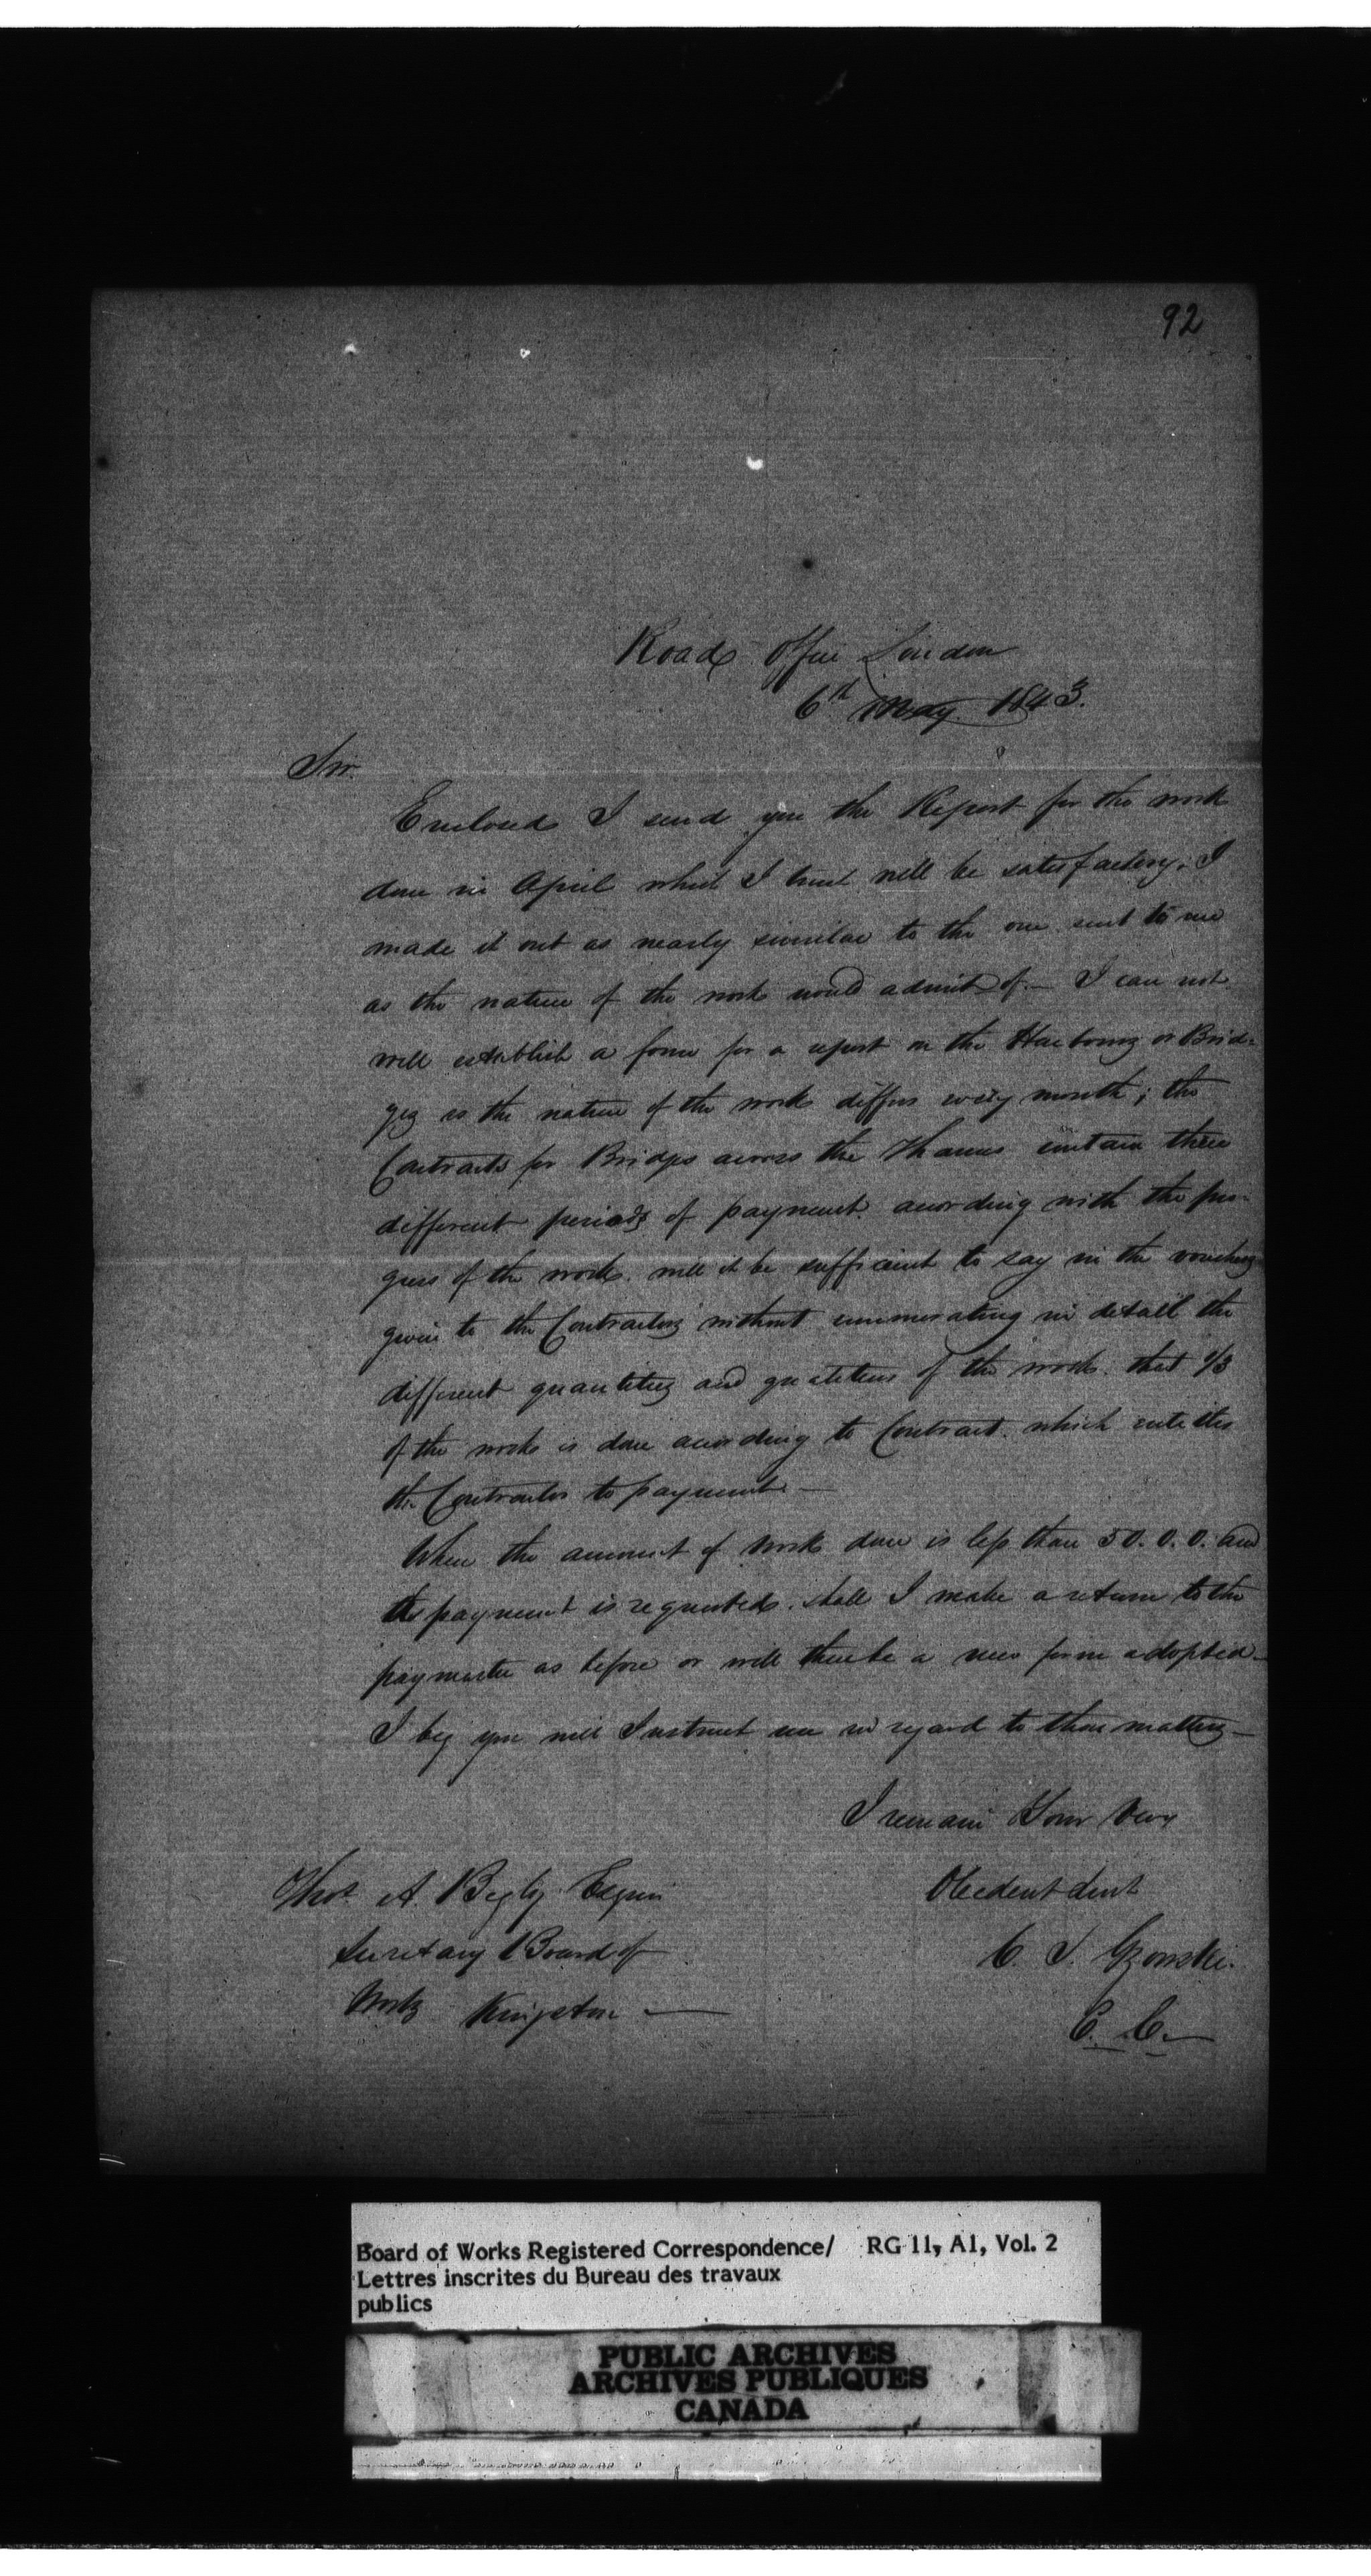 92
Road Office London
6th May 1843.
Sir.
Enclosed I send you the Report for the work
done in April which I trust will be satisfactory. I
made it out as nearly similar to the one sent to me
as the nature of the work would admit of. — I can not
well establish a form for a report on the Harbourg or Brid=
ges as the nature of the work differs every month; the
Contracts for Bridges across the Thames contain three
different periods of payment. acording with the pro-
gress of the work. will it be sufficient to say in the vouchers
given to the Contractors without enumerating in detail the
different quantities and qualities of the work. that 1/3
of the work is done acording to Contract. which entitles
the Contractor to payment. —
When the amount of work done is less than 50. 0. 0. and
the payment is requested. shall I make a return to the
paymaster as before or will there be a new form adopted —
I beg you will Instruct me in regard to these matters —
I remain Your Very
Obedent Sevt
C. S. Gzowski.
C. E. —
Thos. A. Begly Esquire
Secretary Board of
Works Kingston —
Board of Works Registered Correspondence/ RG 11, A1, Vol. 2
Lettres inscrites du Bureau des travaux
publics
PUBLIC ARCHIVES
ARCHIVES PUBLIQUES
CANADA